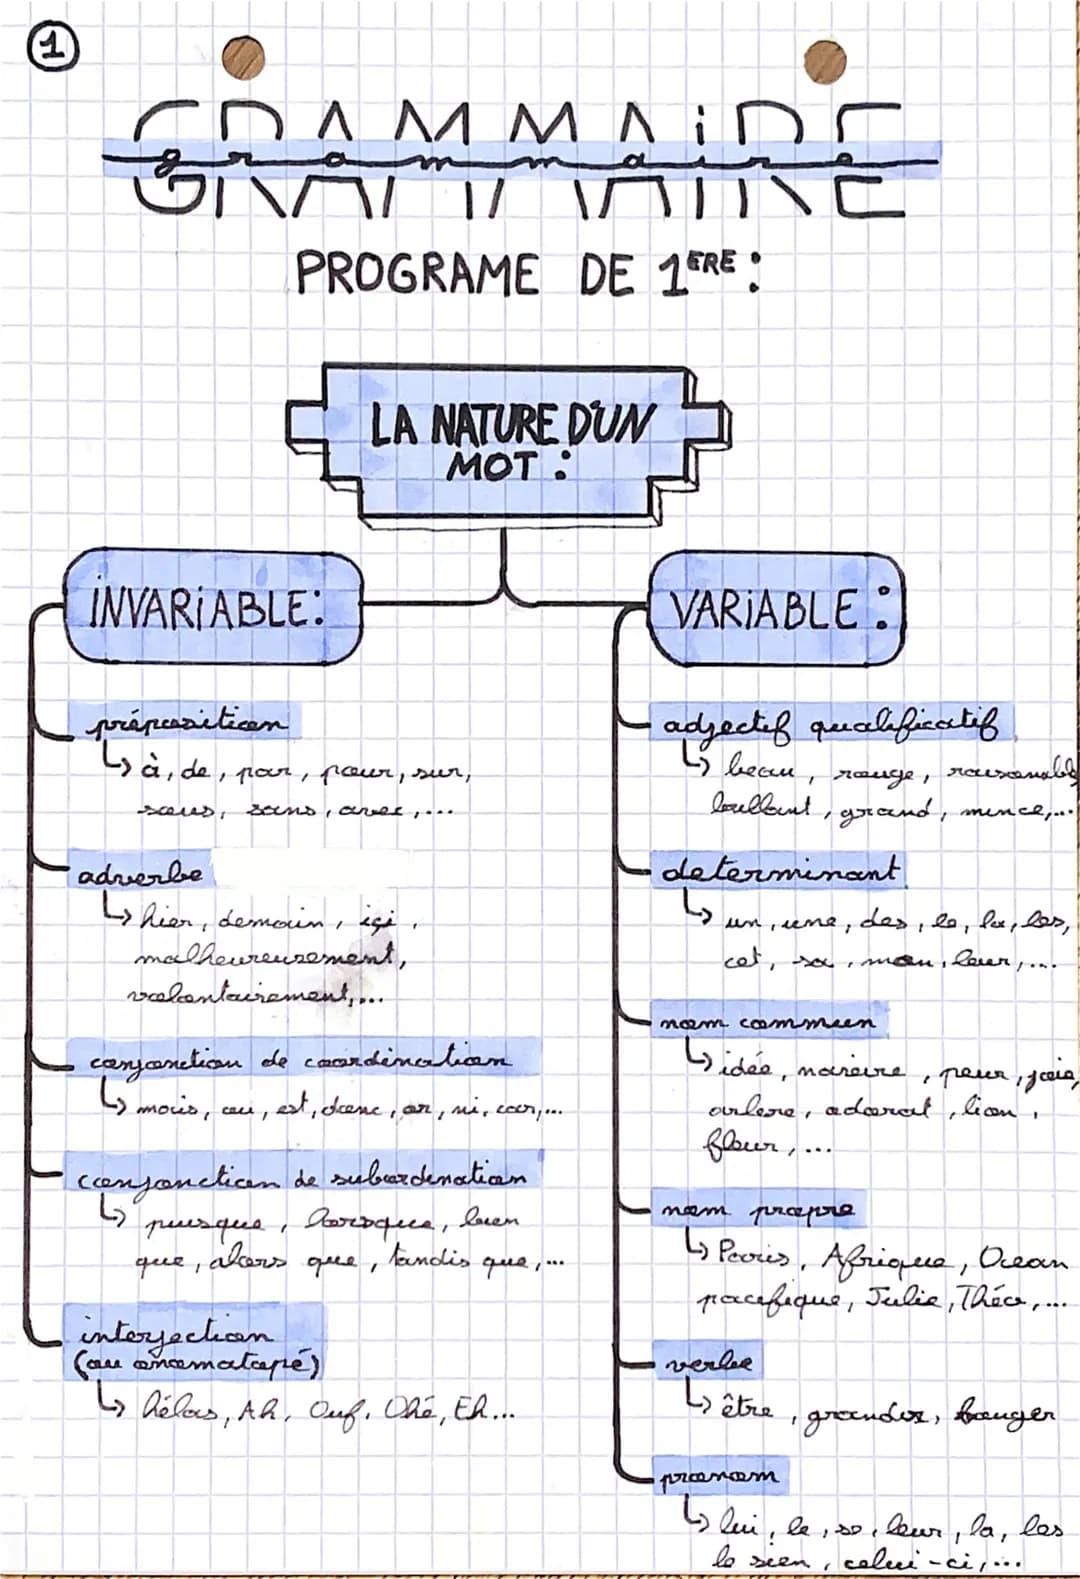 1
GRAMMAIRE
grammaire
PROGRAME DE 1ERE :
LA NATURE D'UN
MOT :
INVARIABLE:
préposition
↳ à, de, par, pour, sur,
sous, sans, avec,...
adverbe
↳ hier, demain, içi,
malheureusement,
volontairement,...
conjonction de coordination
↳ mais, ou, est, donc, or, ni, car,...
conjonction de subordination
↳ puisque, lorsque, bien
que, alors que, tandis que,...
interjection
(ou onomatopé)
↳ hélas, Ah, Ouf, Ohé, Eh...
VARIABLE :
adjectif qualificatif
↳ beau, rouge, raisonnable
grand, mince,...
determinant
↳ un, une, des, le, la, les,
cet, sa, mon, leur,...
nom commun
↳ idée, peur, joie,
odorat, lion,
fleur,...
nom propre
↳ Paris, Afrique, Ocean
pacifique, Julie, Théo,...
verbe
↳ être, grandir, bouger
pronom
↳ lui, le, se, leur, la, les
le sien, celui-ci,...